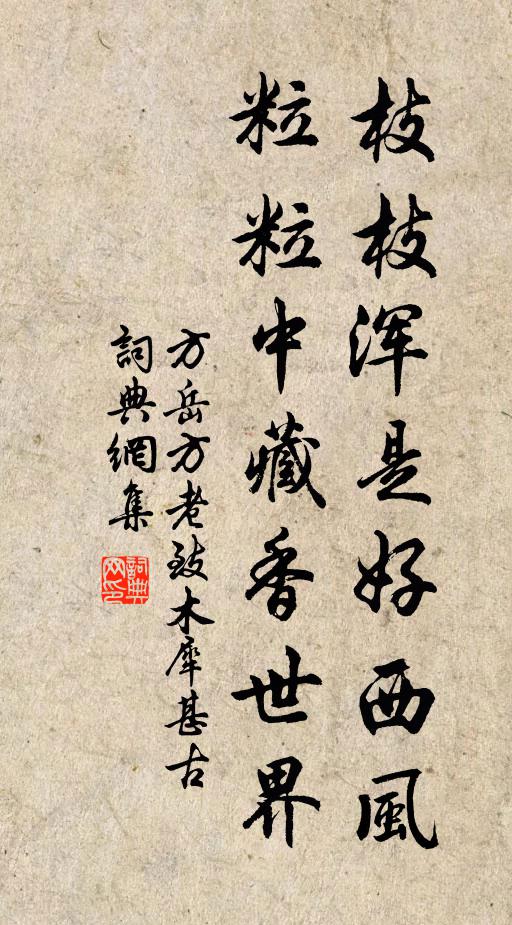 枝枝浑是好西風
粒粒中藏香世界
方岳方老致木犀甚古
詞典網集
詞典网印